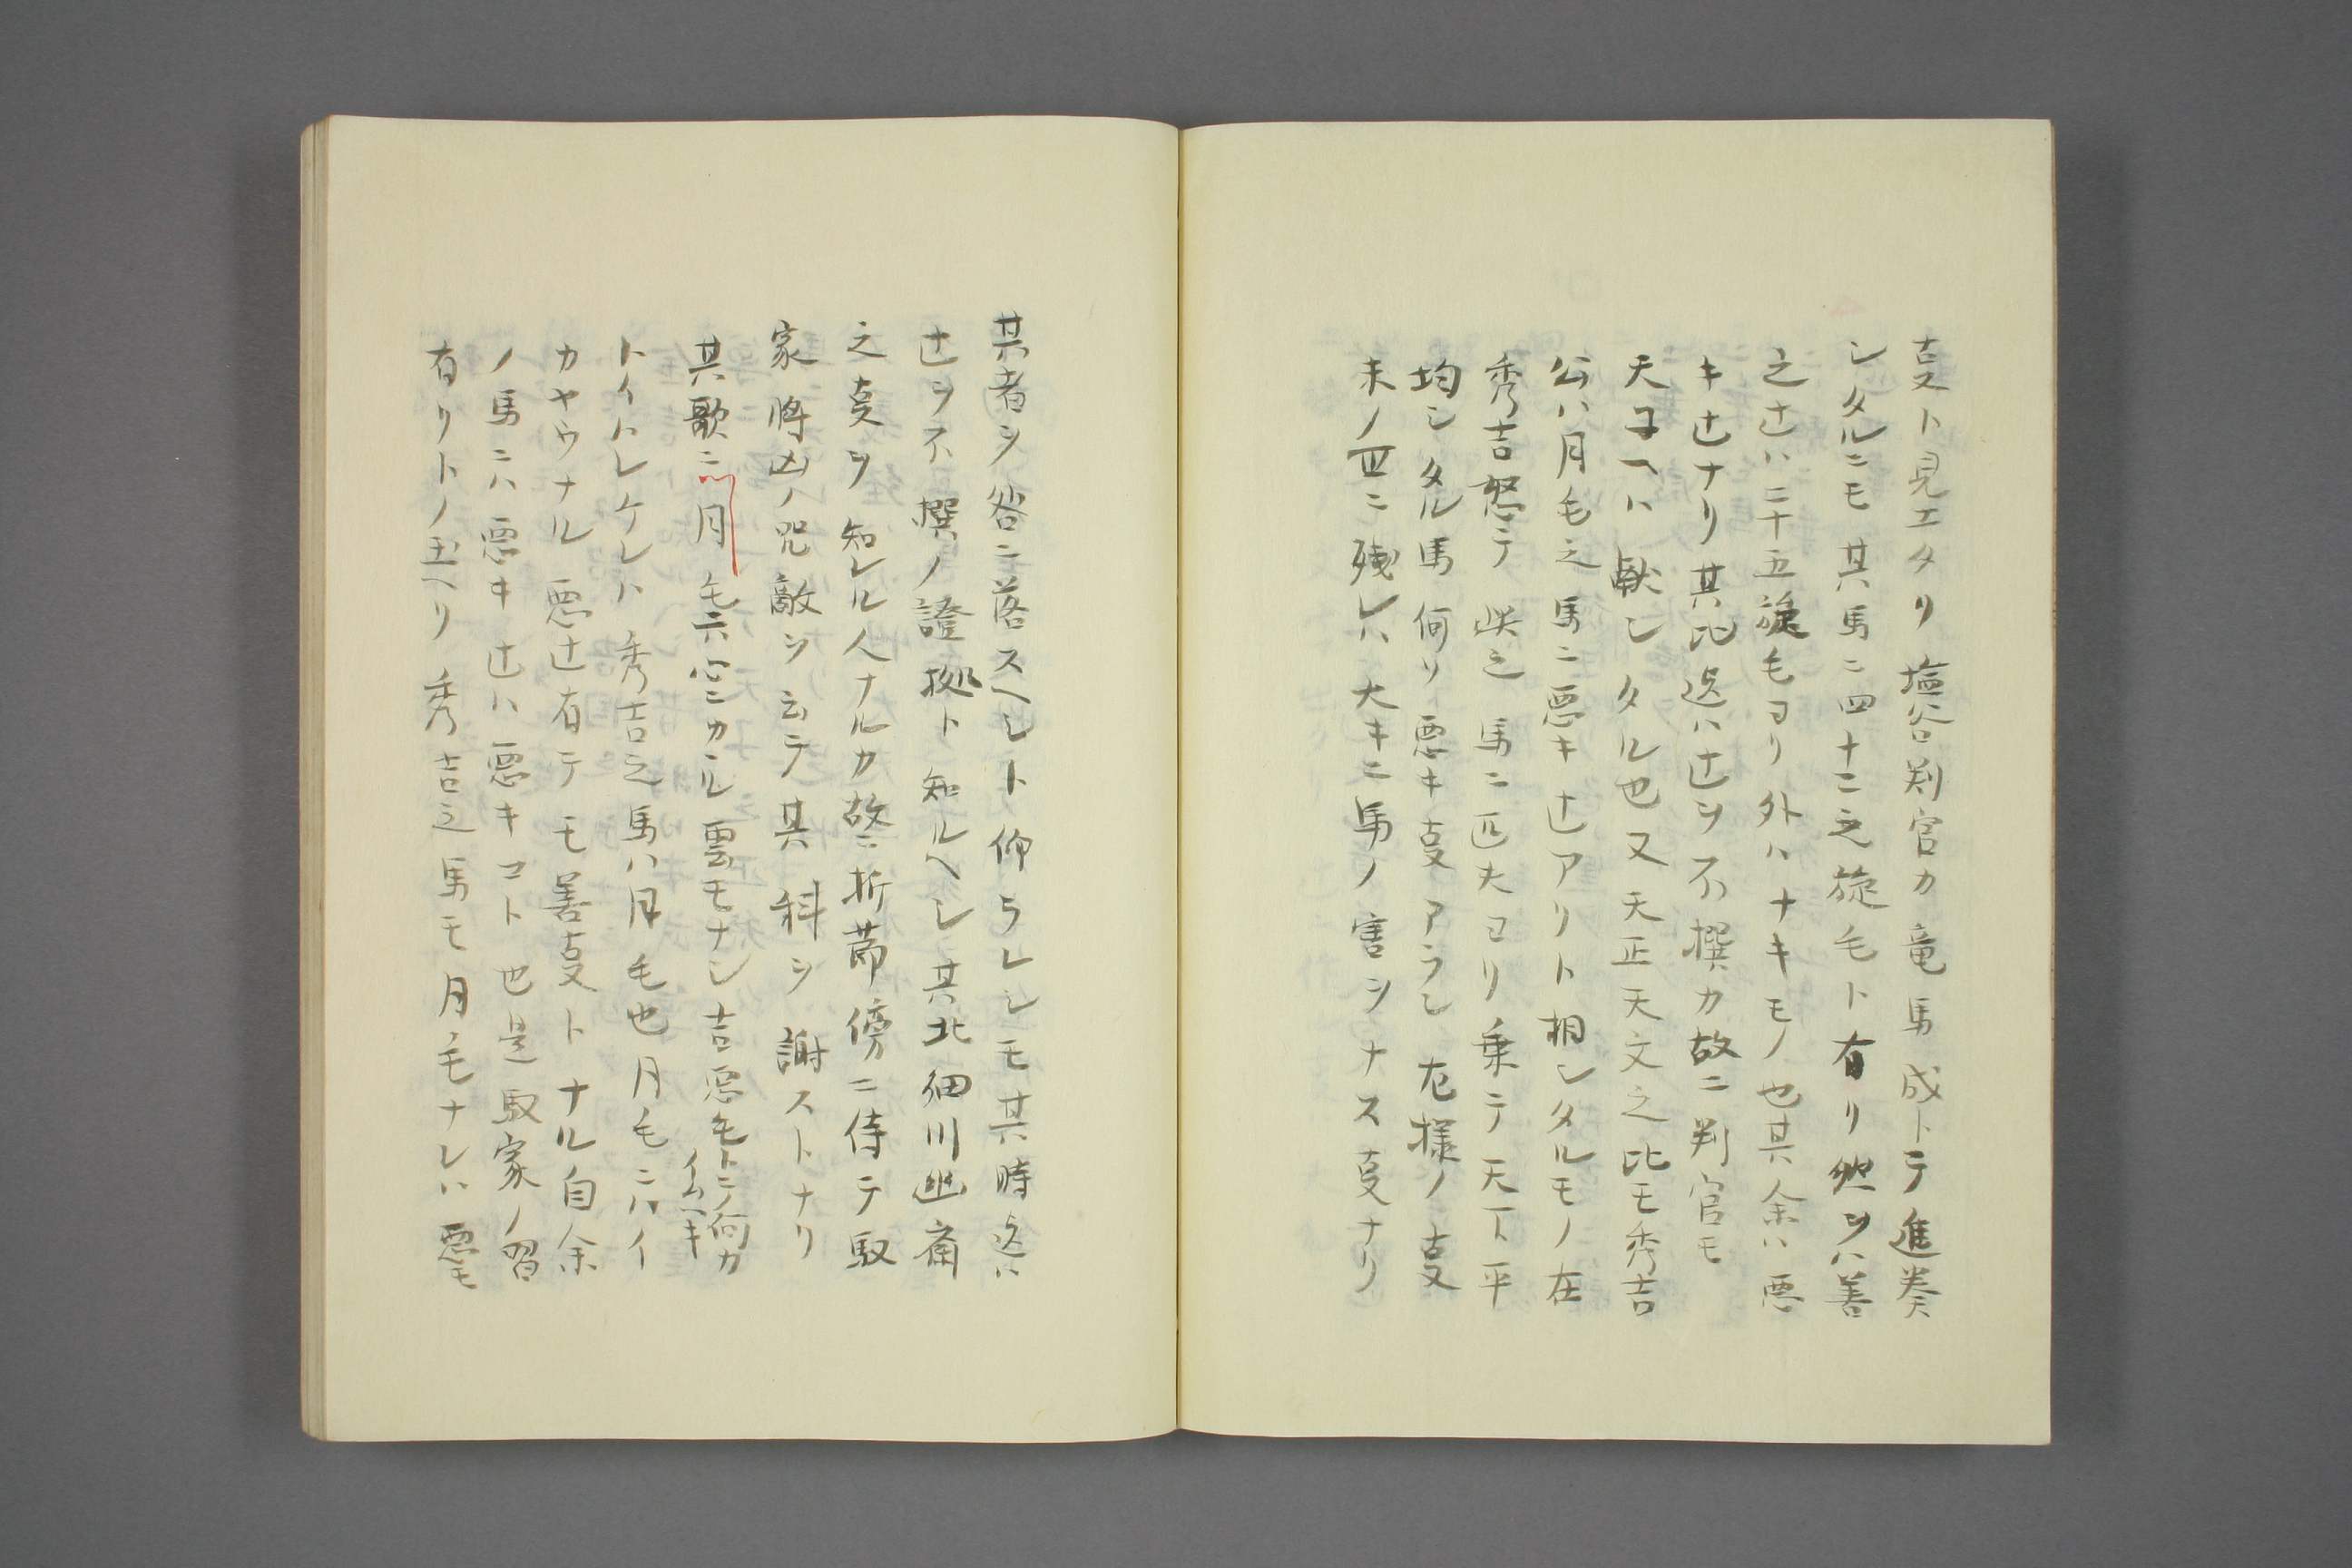 叓ト見エタリ塩谷判官カ竜馬成トテ進奏
シタルニモ其馬ニ四十二之旋毛ト有リ然ツハ善
之辻ハ二十五旋毛ヨリ外ハナキモノ也其余ハ悪
キ辻ナリ其比迄ハ辻ヲ不撰カ故ニ判官モ
天子ヘハ献シタル也又天正天文之比モ秀吉
公ハ月毛之馬ニ悪キ辻アリト相シタルモノ在
秀吉怒テ 之馬ニ匹夫ヨリ乗テ天下平
均シタル馬何リ悪キ叓アラン左様ノ叓
末ノ世ニ残レハ大キニ馬ノ害ヲナス叓ナリ
其者ヲ咎ニ落スヘシト仰ラレシモ其時迄ハ
辻ヲ不撰ノ證拠ト知ルヘシ其比細川幽斎
之叓ヲ知レル人ナルカ故ニ折節傍ニ侍テ馭
家將凶ノ咒敵ヲ云テ其科ヲ謝ストナリ
其歌ニ月毛六空ニカヽル雲モナシ吉悪毛トテ何カ
イムヘキ
トイトレケレハ秀吉之馬ハ月毛也月毛ニハイ
カヤウナル悪辻有テモ善叓トナル自余
ノ馬ニハ悪キ辻ハ悪キコト也是馭家ノ習
有リトノ玉ヘリ秀吉之馬モ月毛ナレハ悪モ